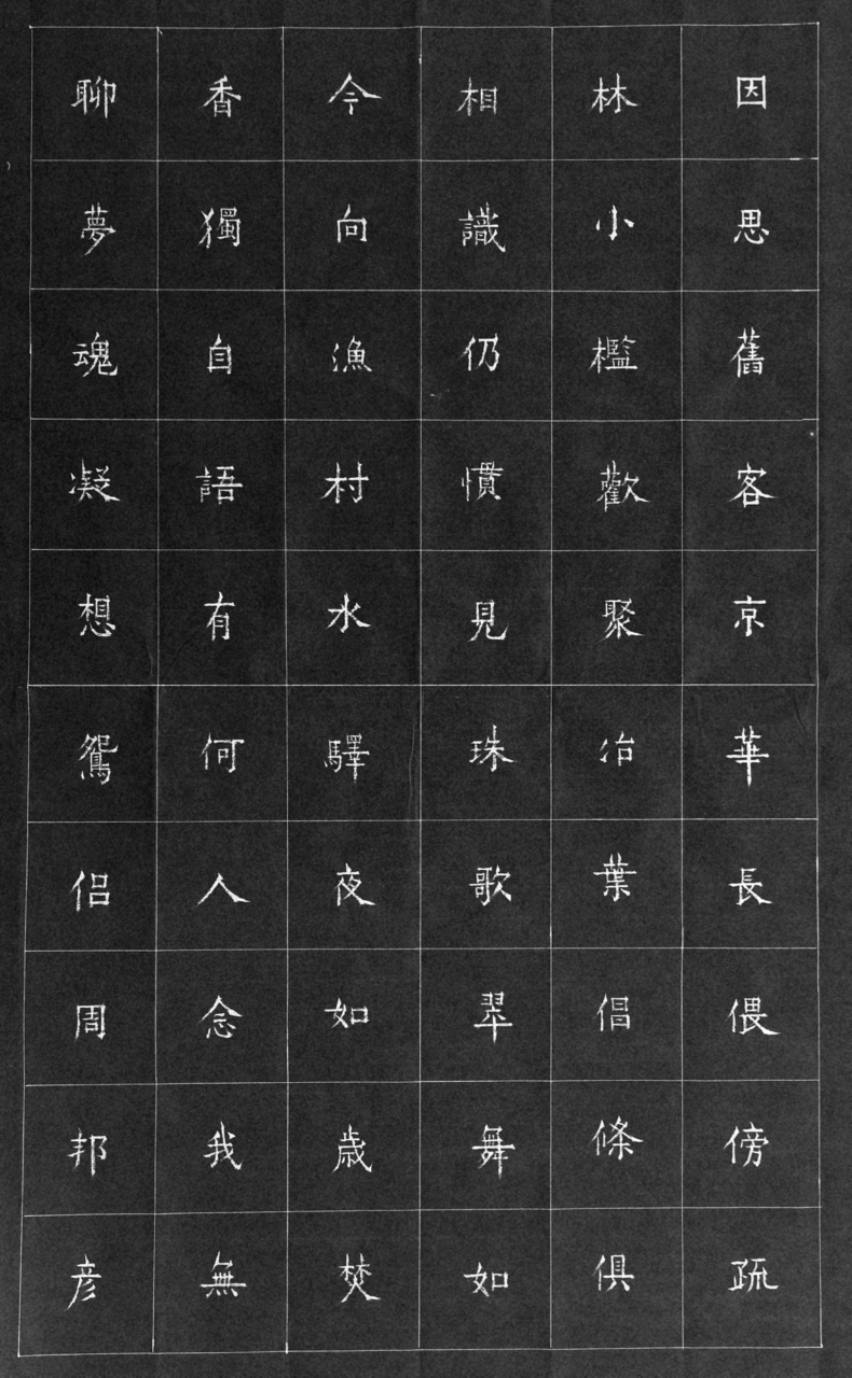 因思舊客京華長偎傍疏
林小檻歡聚冶葉倡條俱
相識仍慣見珠歌翠舞如
今向漁村水驛夜如歳焚
香獨自語有何人念我無
聊夢魂凝想鴛侶周邦彦